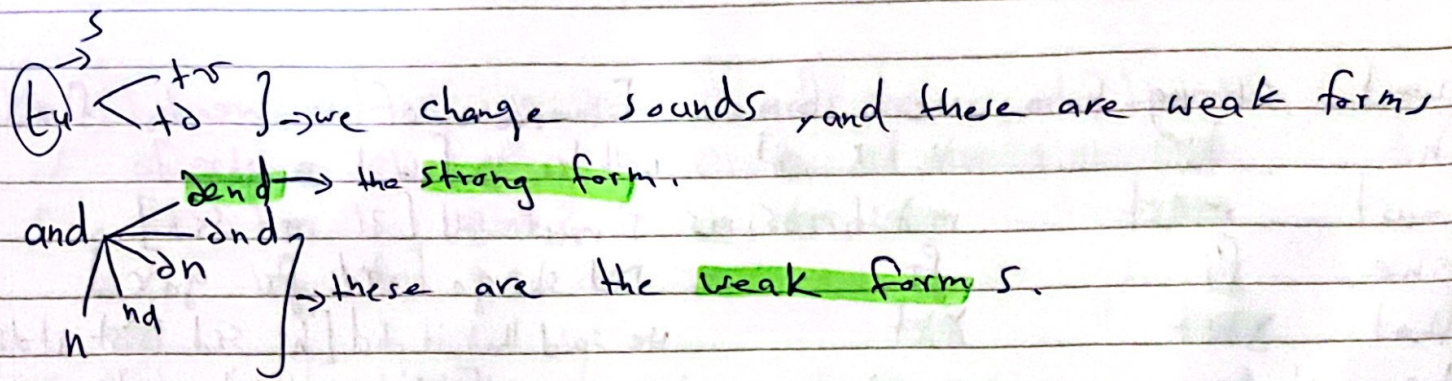 s
tu → tʊ
tə } → we change sounds, and these are weak forms
ænd → the strong form.
and ənd
ən } → these are the weak forms.
nd
n